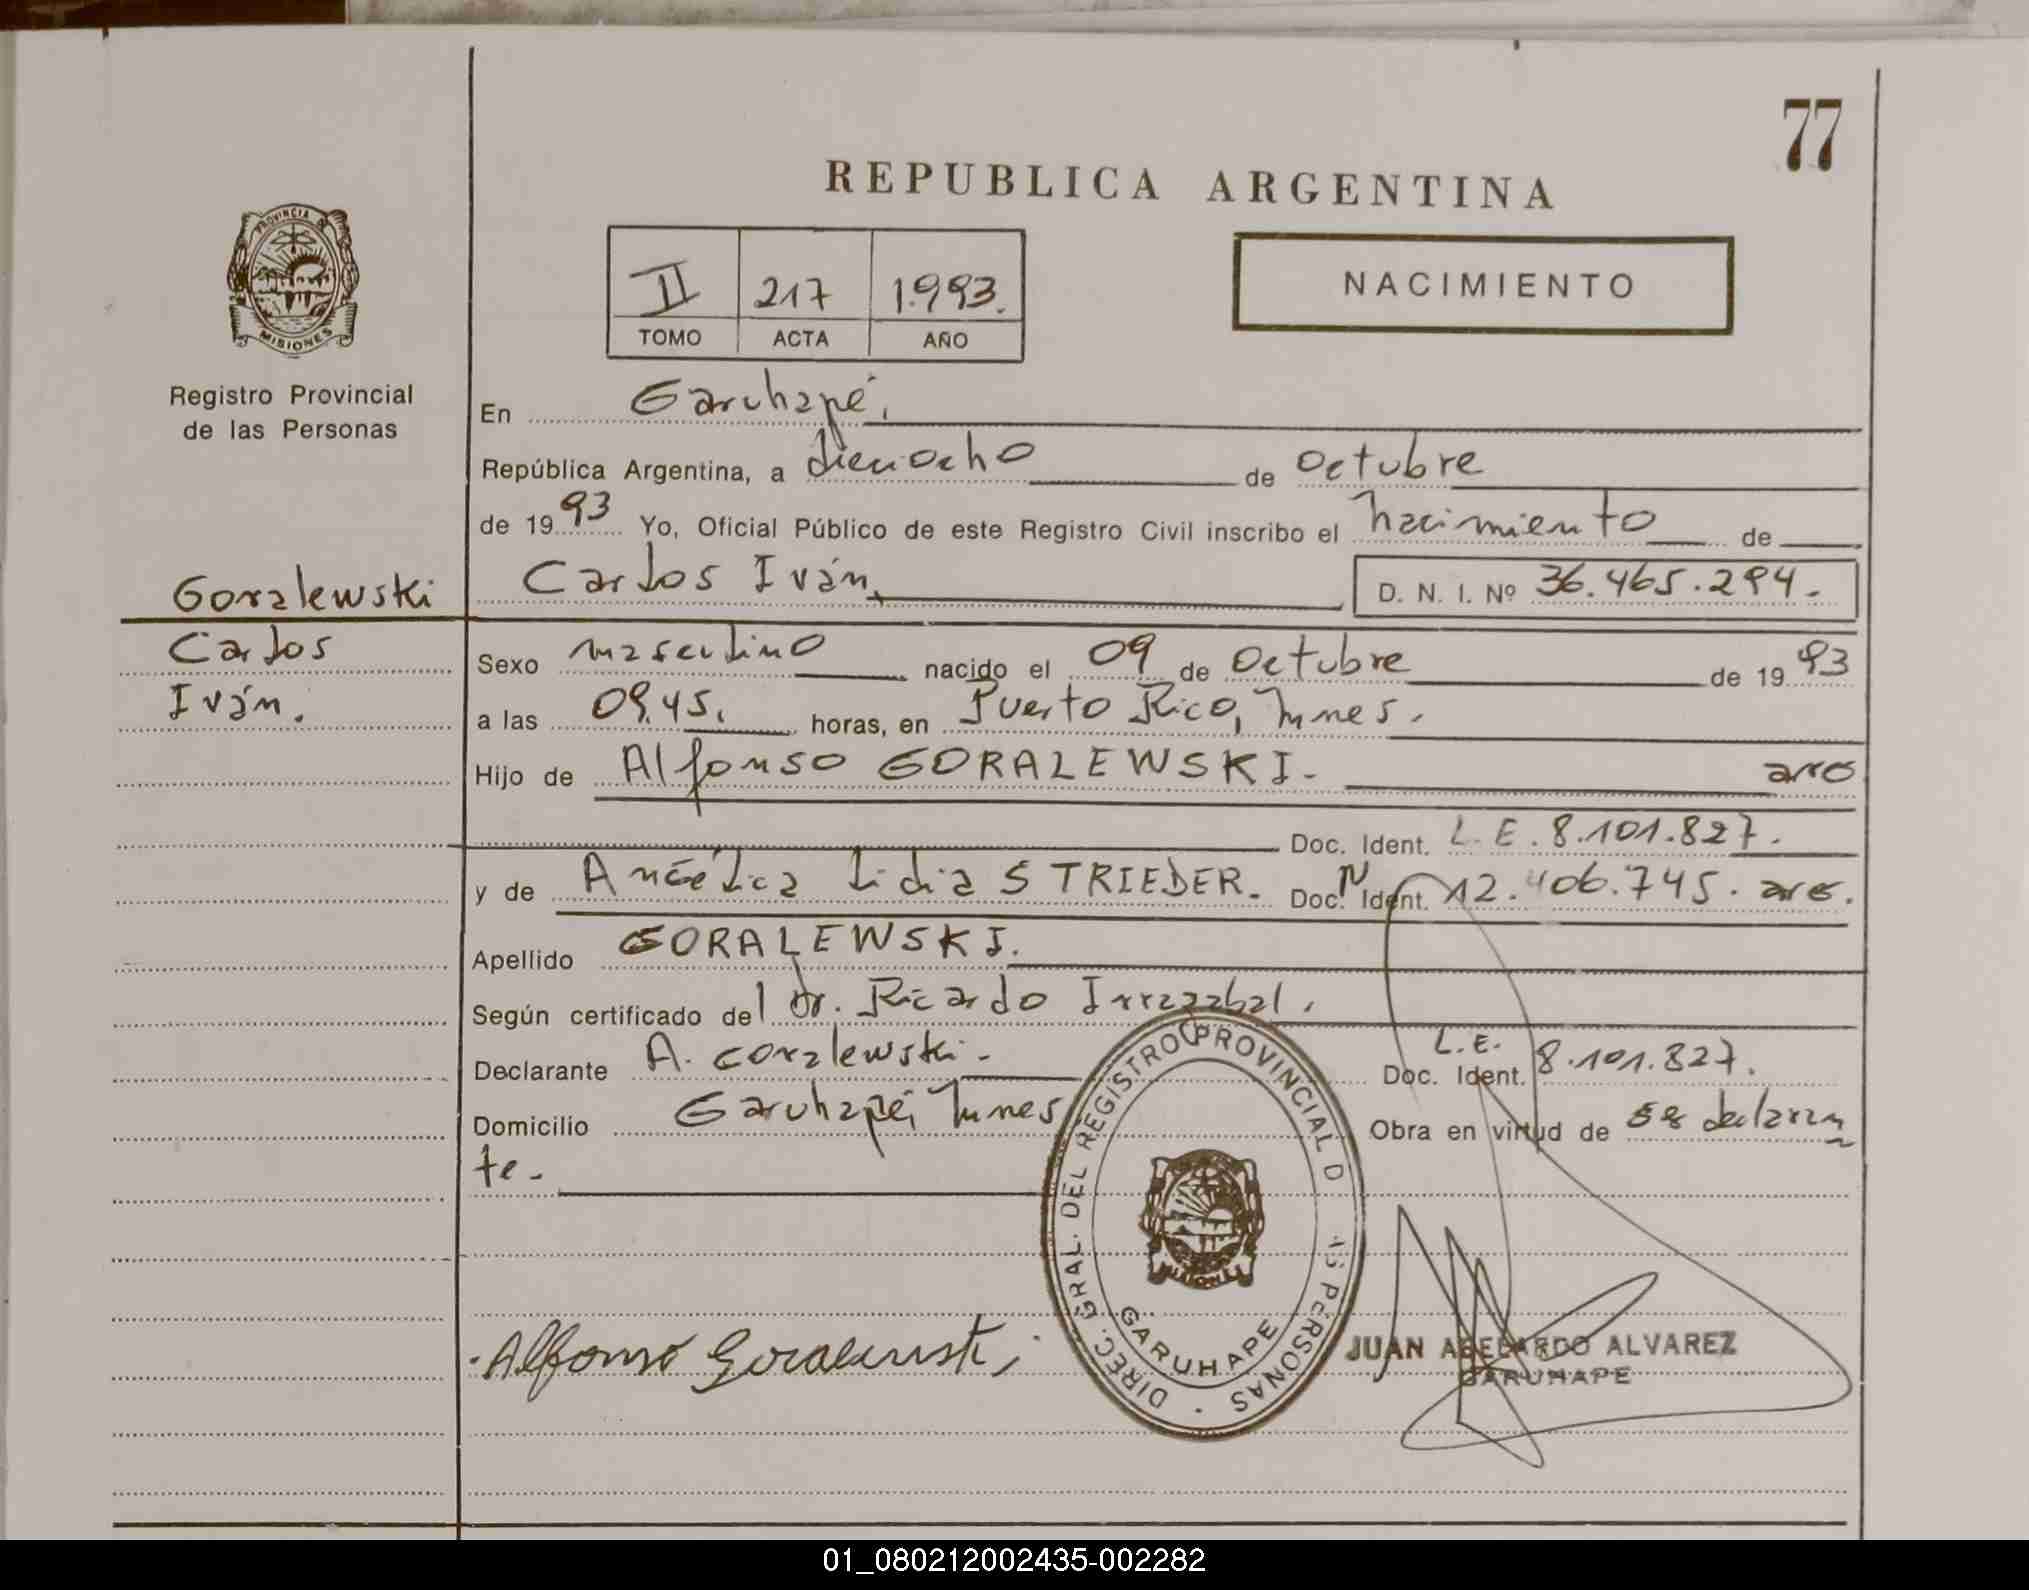 77
REPUBLICA ARGENTINA
PROVINCIA DE
MISIONES
II 217 1.993.
TOMO ACTA AÑO
NACIMIENTO
Registro Provincial
de las Personas
En Garuhapé,
República Argentina, a dieciocho de Octubre
de 1993 Yo, Oficial Público de este Registro Civil inscribo el nacimiento de
Goralewski
Carlos
Iván.
Carlos Iván, D. N. I. Nº 36.465.294.
Sexo masculino nacido el 09 de Octubre de 1993
a las 09.45. horas, en Puerto Rico, Mnes.
Hijo de Alfonso GORALEWSKI. arg
Doc. Ident. L.E. 8.101.827.
y de Angélica Lidia STRIEDER. Doc. N Ident. 12.406.745. arg.
Apellido GORALEWSKI.
Según certificado del Dr. Ricardo Irrazabal,
Declarante A. Goralewski. L.E. Doc. Ident. 8.101.827.
Domicilio Garuhapé, Mnes Obra en virtud de ser declaran
te.
DIREC. GRAL. DEL REGISTRO PROVINCIAL D PERSONAS
MISIONES
GARUHAPE
Alfonso Goralewski
JUAN ABELARDO ALVAREZ
GARUHAPE
01_080212002435-002282